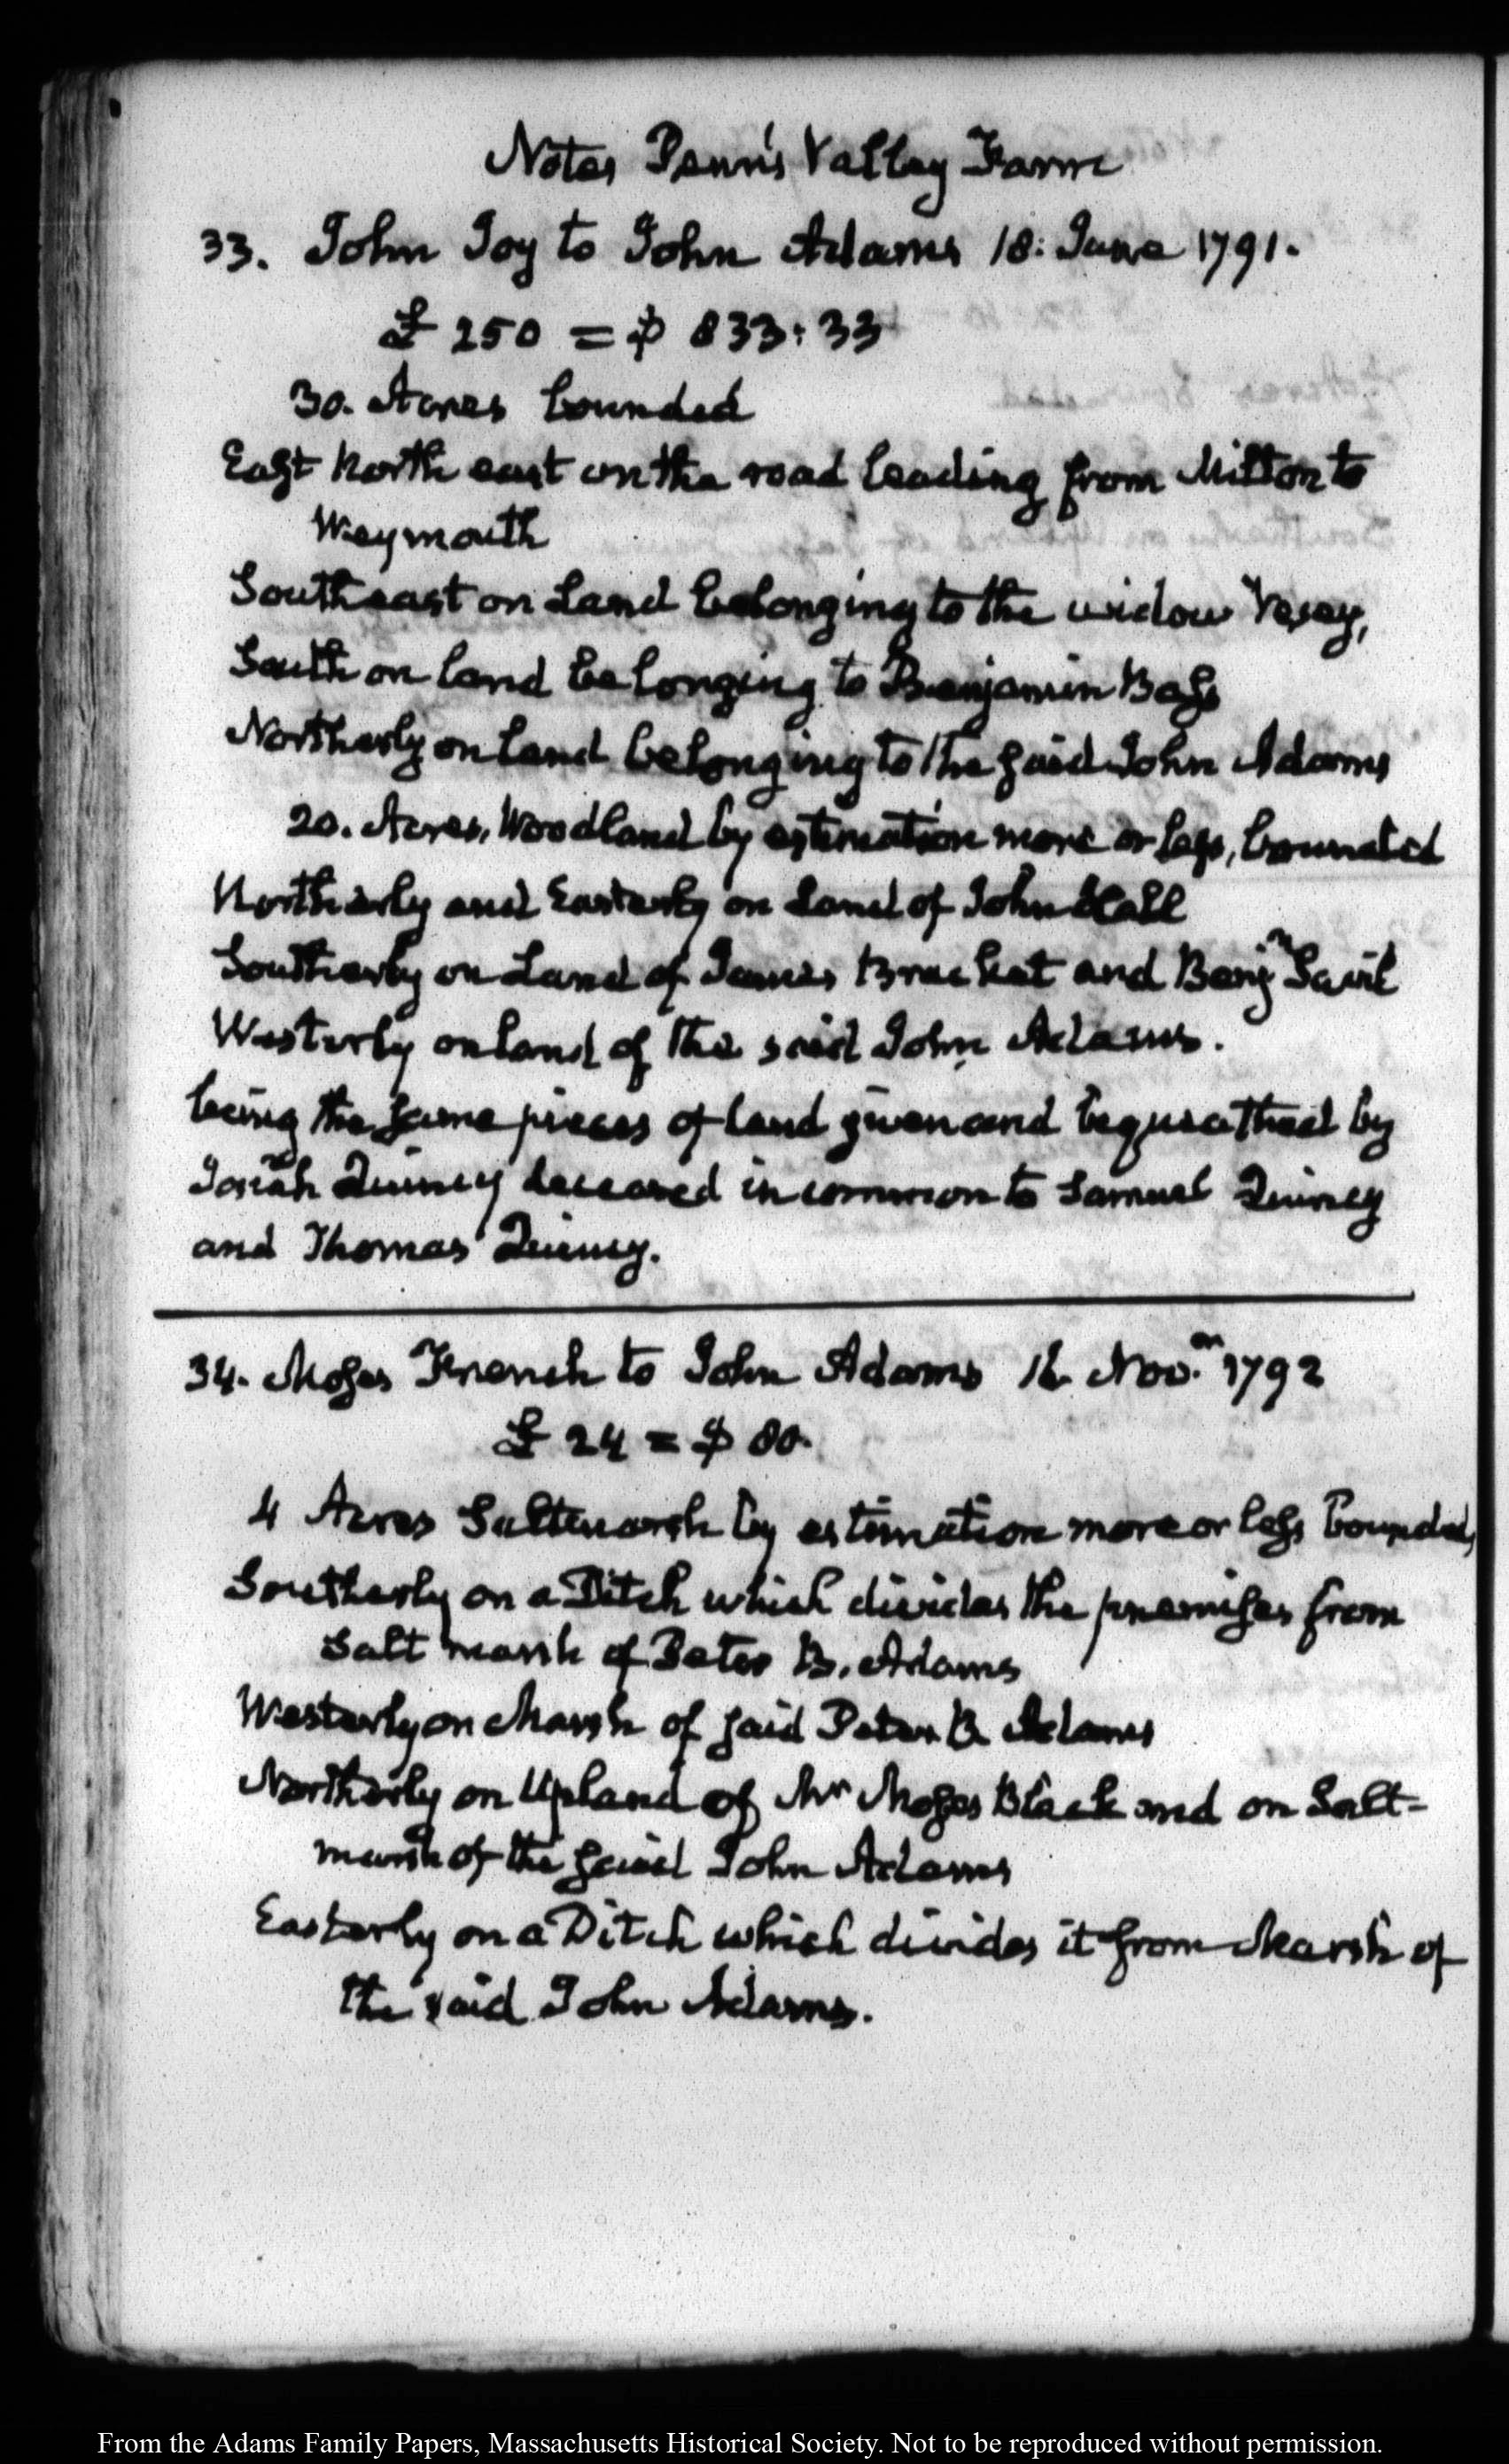 Notes Penn's Valley Farm
33. John Joy to John Adams 18: June 1791.
£ 250 = $ 833:33
30. Acres bounded
East North east on the road leading from Milton to
Weymouth
Southeast on Land belonging to the widow Vesey,
South on land belonging to Benjamin Bass
Northerly on Land belonging to the said John Adams
20. Acres, Woodland by estimation more or less, bounded
Northerly and Easterly on Land of John Hall
Southerly on Land of James Bracket and Benjn Savil
Westerly on land of the said John Adams.
being the same pieces of land given and bequeathed by
Josiah Quincy deceased in common to Samuel Quincy
and Thomas Quincy.
34. Moses French to John Adams 16. Nov.r 1792
£ 24 = $ 80.
4 Acres Saltmarsh by estimation more or less bounded,
Southerly on a Ditch which divides the premises from
Salt marsh of Peter B. Adams
Westerly on Marsh of said Peter B. Adams
Northerly on Upland of Mr Moses Black and on Salt-
marsh of the said John Adams
Easterly on a Ditch which divides it from Marsh of
the said John Adams.
From the Adams Family Papers, Massachusetts Historical Society. Not to be reproduced without permission.